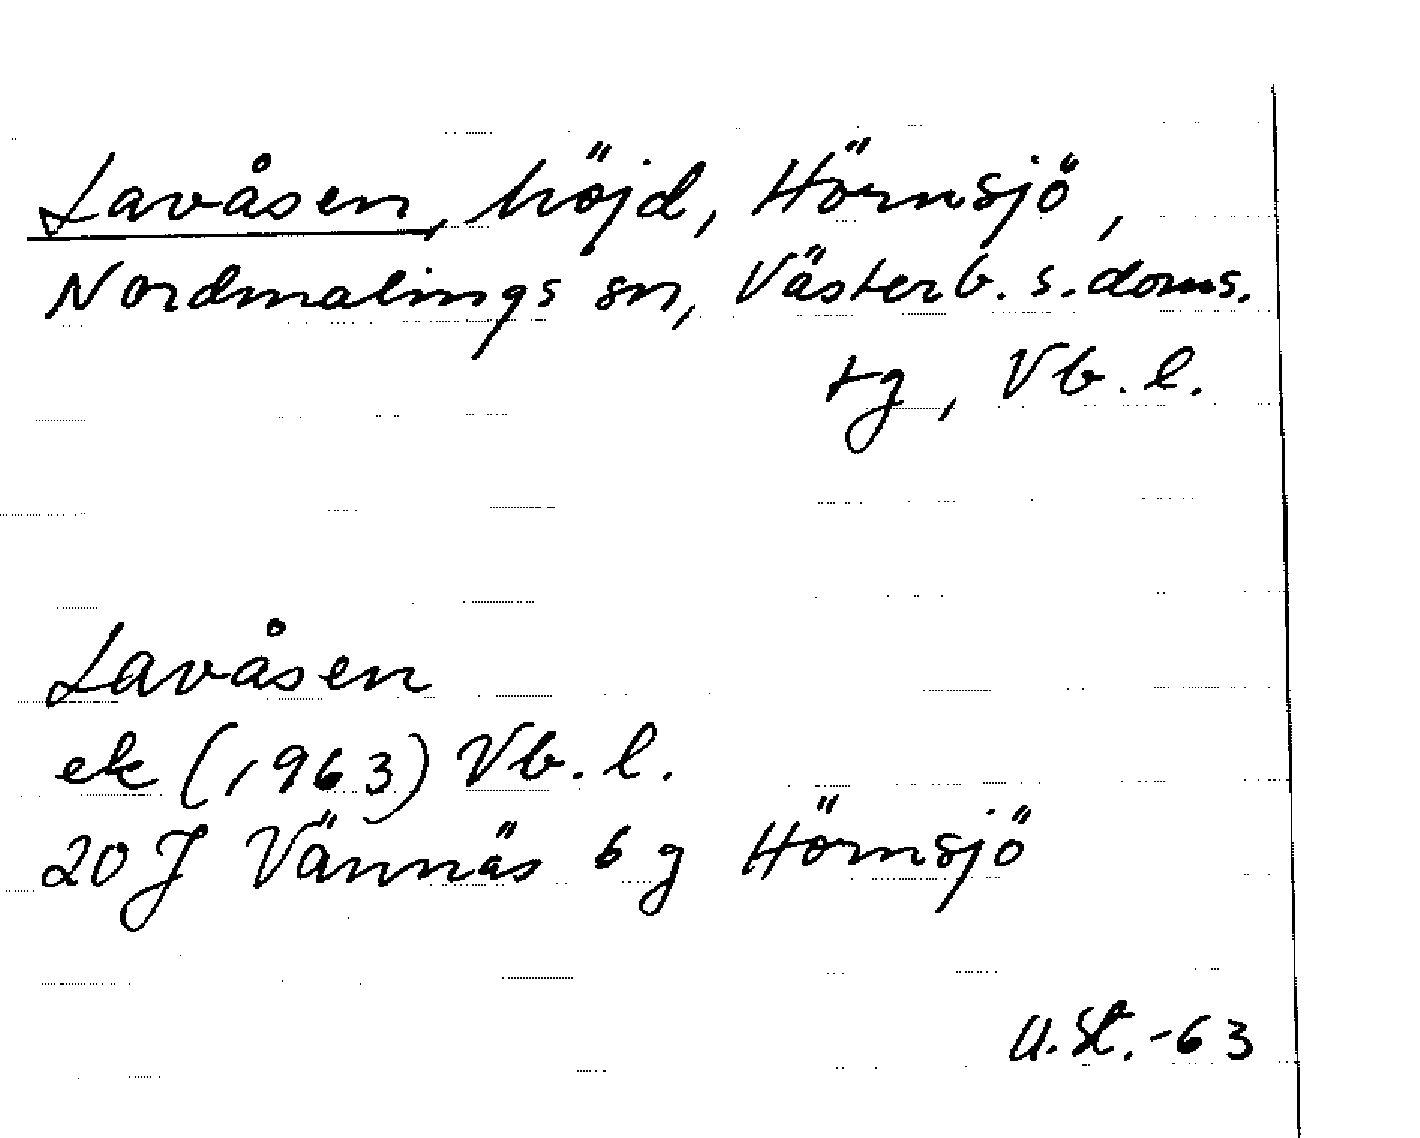 Lavåsen, höjd, Hörnsjö,
Nordmalings sn, Västerb. s. doms.
tg, Vb. l.
Lavåsen
ek (1963) Vb. l.
20 J Vännäs 6 g Hörnsjö
U. St. -63